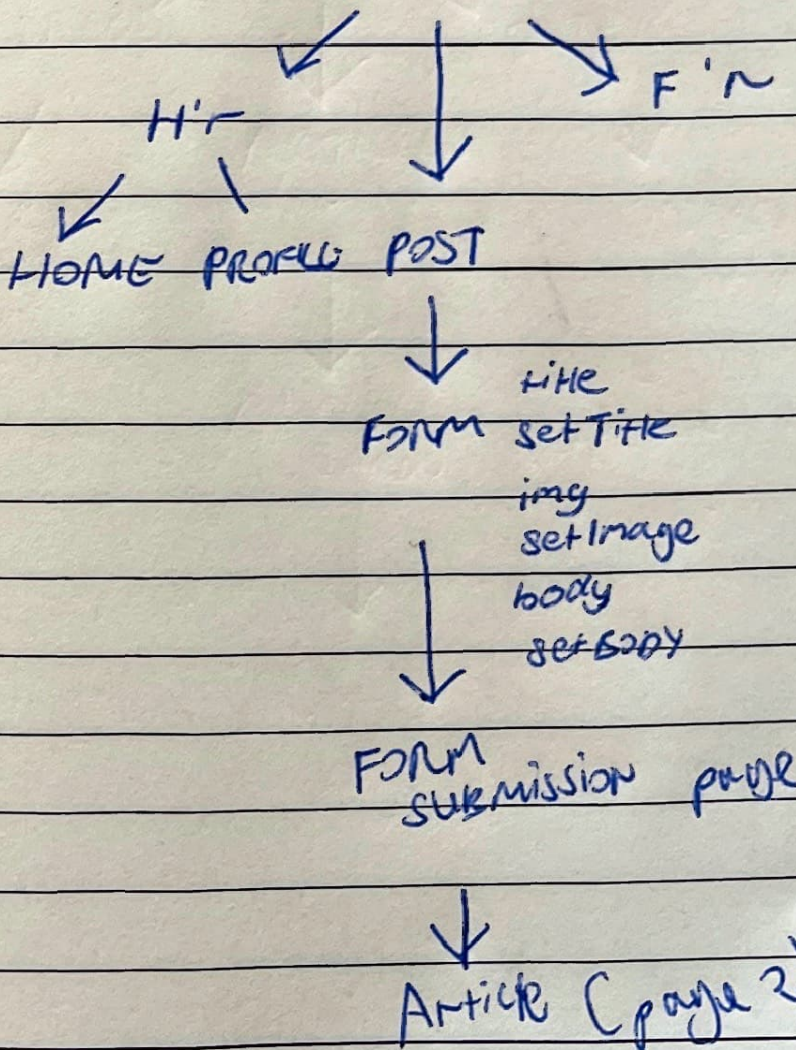 H'r
F'r
HOME PROFILE POST
FORM
title
setTitle
img
setImage
body
setBODY
FORM
SUBMISSION page
Article (page?